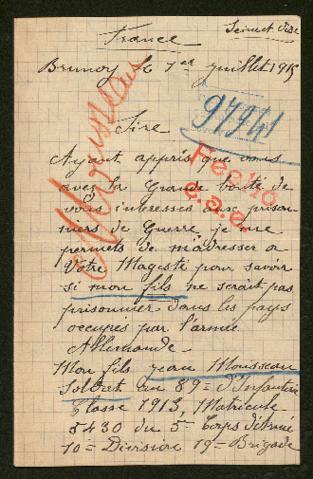 France
Seine et Oise
Brunoy le 1er juillet 1915
Mousseau
97941
Sire
Recib.
c.a.e.
Ayant appris que vous
avez la Grande bonté de
vous interesses aux prison
niers de Guerre, je me
permets de m'adresser a
Votre Magesti pour savoir
si mon fils ne serait pas
prisonnier dans les pays
occupes par l'armée
Allemande.
Mon fils jean Mousseau
Soldat au 89= d'Infanterie
Classe 1913, Matricule
5430 du 5= Corps d'Armée
10= Division 19= Brigade